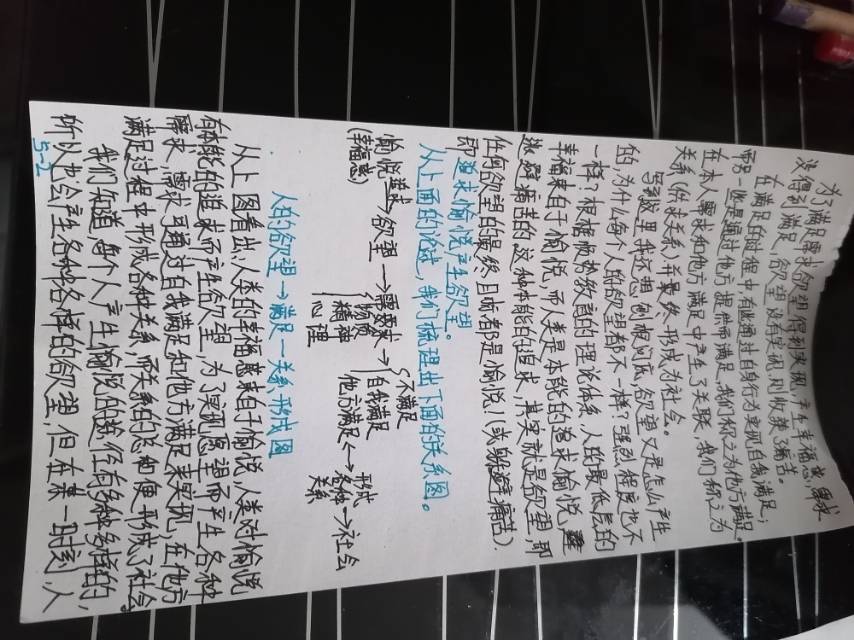 为了满足需求欲望得到实现,产生幸福感,需求
没得到满足,欲望没有实现,则收获了痛苦。
在满足的过程中有些通过自身行为来实现自我满足;
而另一些是通过他方提供而满足,我们称之为他方满足。
在本人需求和他方满足中产生了关联,我们称之为
关系(供求关系)并最终形成为社会。
写到这里我还想刨根问底,欲望又是怎么产生
的,为什么每个人的欲望都不一样?强烈程度也不
一样?根据顺势教育的理论体系,人的最低层的
幸福来自于愉悦,而人类是本能的追求愉悦,
躲避痛苦的,这种本能的追求,其实就是欲望,即
任何欲望的最终目标都是愉悦!(或躲避痛苦)。
即要求愉悦产生欲望。
从上面的论述,我们梳理出下面的关系图。
愉悦 追求→ 欲望 → 需求 → 不满足
(幸福感) 物质 精神 心理 自我满足
他方满足 ←→ 形成各种关系 → 社会
人的欲望→满足—关系形成图
从上图看出,人类的幸福感来自于愉悦,人类对愉悦
有本能的追求而产生欲望,为了实现愿望而产生各种
需求,需求可通过自我满足和他方满足来实现,在他方
满足过程中形成各种关系,而关系的总和便形成了社会。
我们知道,每个人产生愉悦的途径有多种多样的,
所以也会产生各种各样的欲望,但在某一时刻,人
5-2